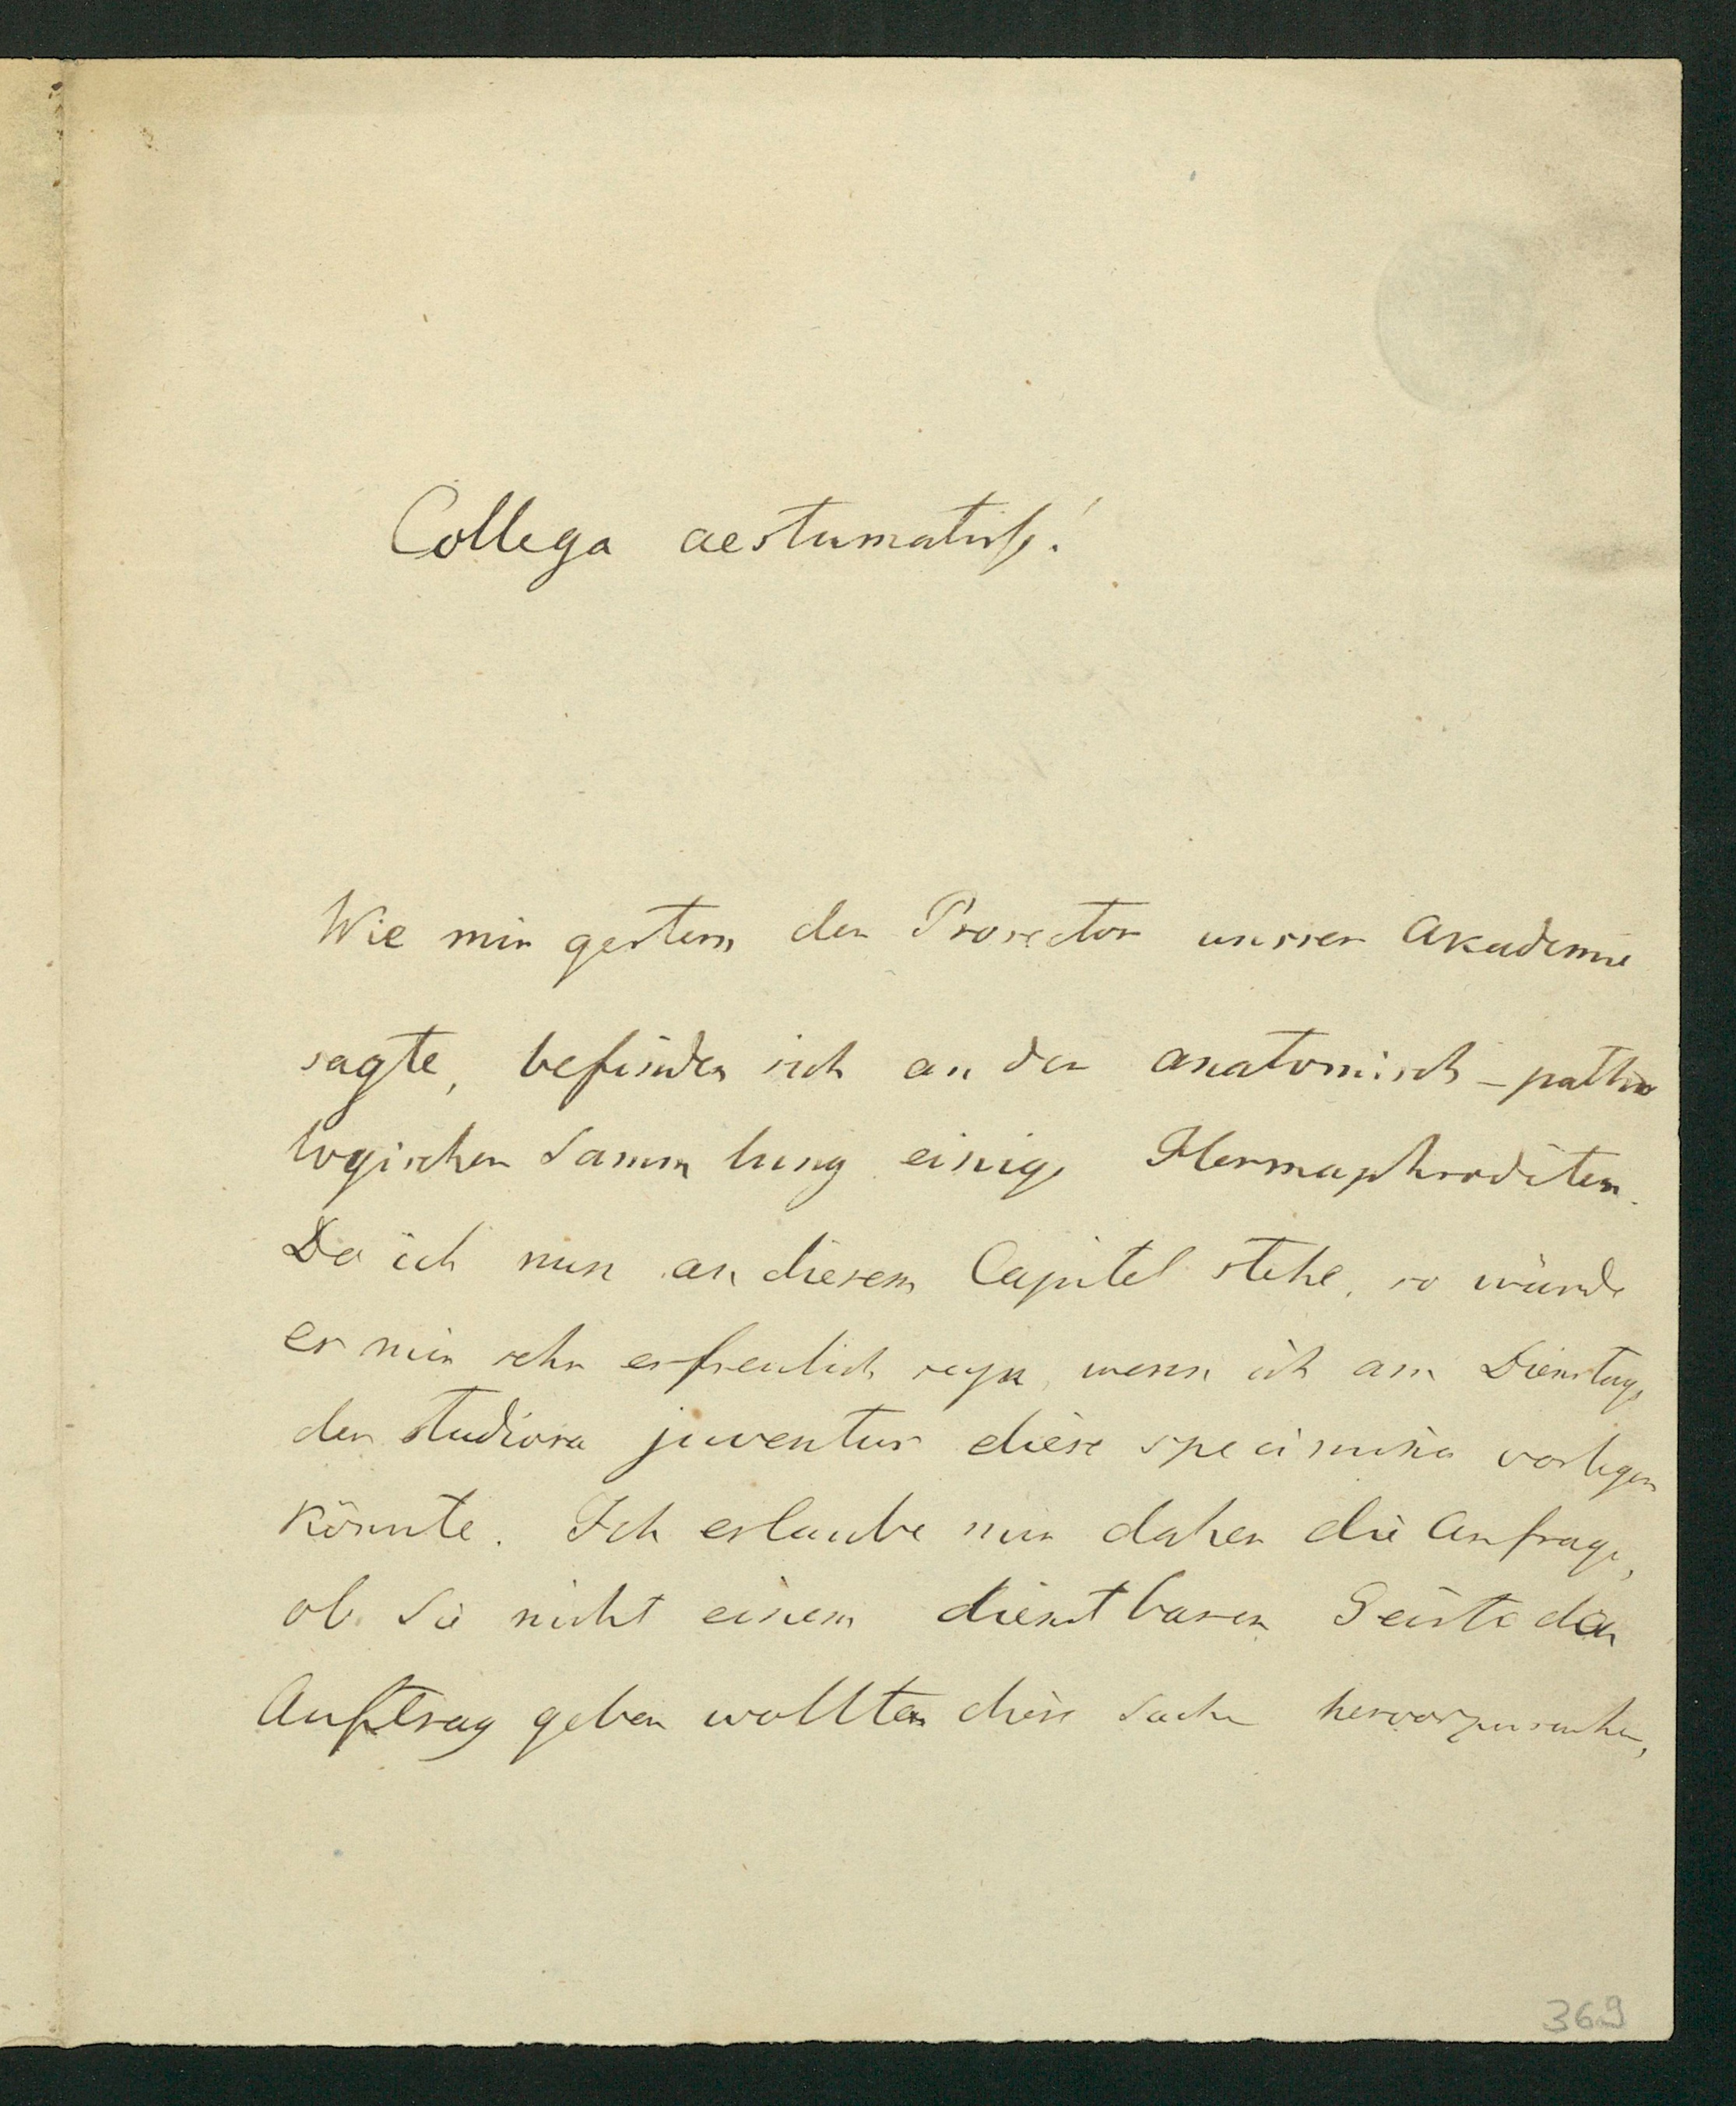 Collega aestumatiss!
Wie mir gestern der Prosector unsrer Akademie
sagte, befinden sich an der anatomisch-patho
logischen Sammlung einige Hermaphroditen.
Da ich nun an diesem Capitel stehe, so würde
es mir sehr erfreulich seyn, wenn ich am Dienstage
der studiosa juventus diese specimina vorlegen
könnte. Ich erlaube mir daher die Anfrage,
ob Sie nicht einem dienstbaren Geiste den
Auftrag geben wollten diese Sache hervorzusuchen,
369